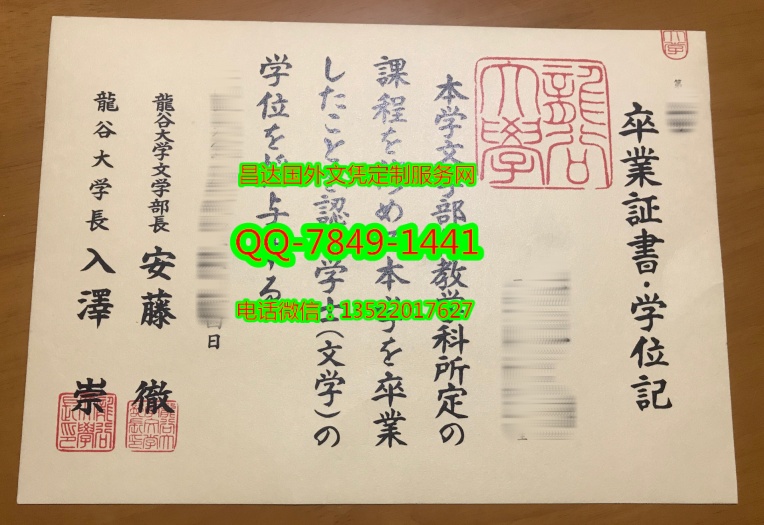 第
卒業証書・学位記
龍谷大學
本学文学部教学科所定の
課程を修め本学を卒業
したことを認学士(文学)の
学位を与る
日
龍谷大学文学部長 安藤 徹
龍谷大学長 入澤 崇
昌达国外文凭定制服务网
QQ-7849-1441
电话微信：13522017627